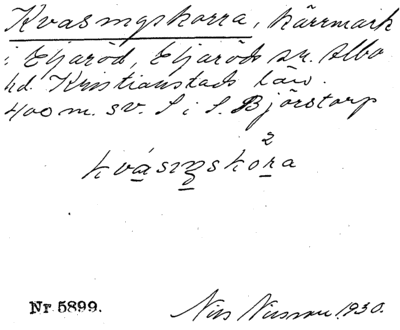 Kvasingskorra, kärrmark
i Eljaröd, Eljaröds sn. Albo
hd. Kristianstads län.
400 m. sv. S i S. Björstorp
kvásiŋskor̀a
2
Nr 5899.
Nils Nilsson 1930.